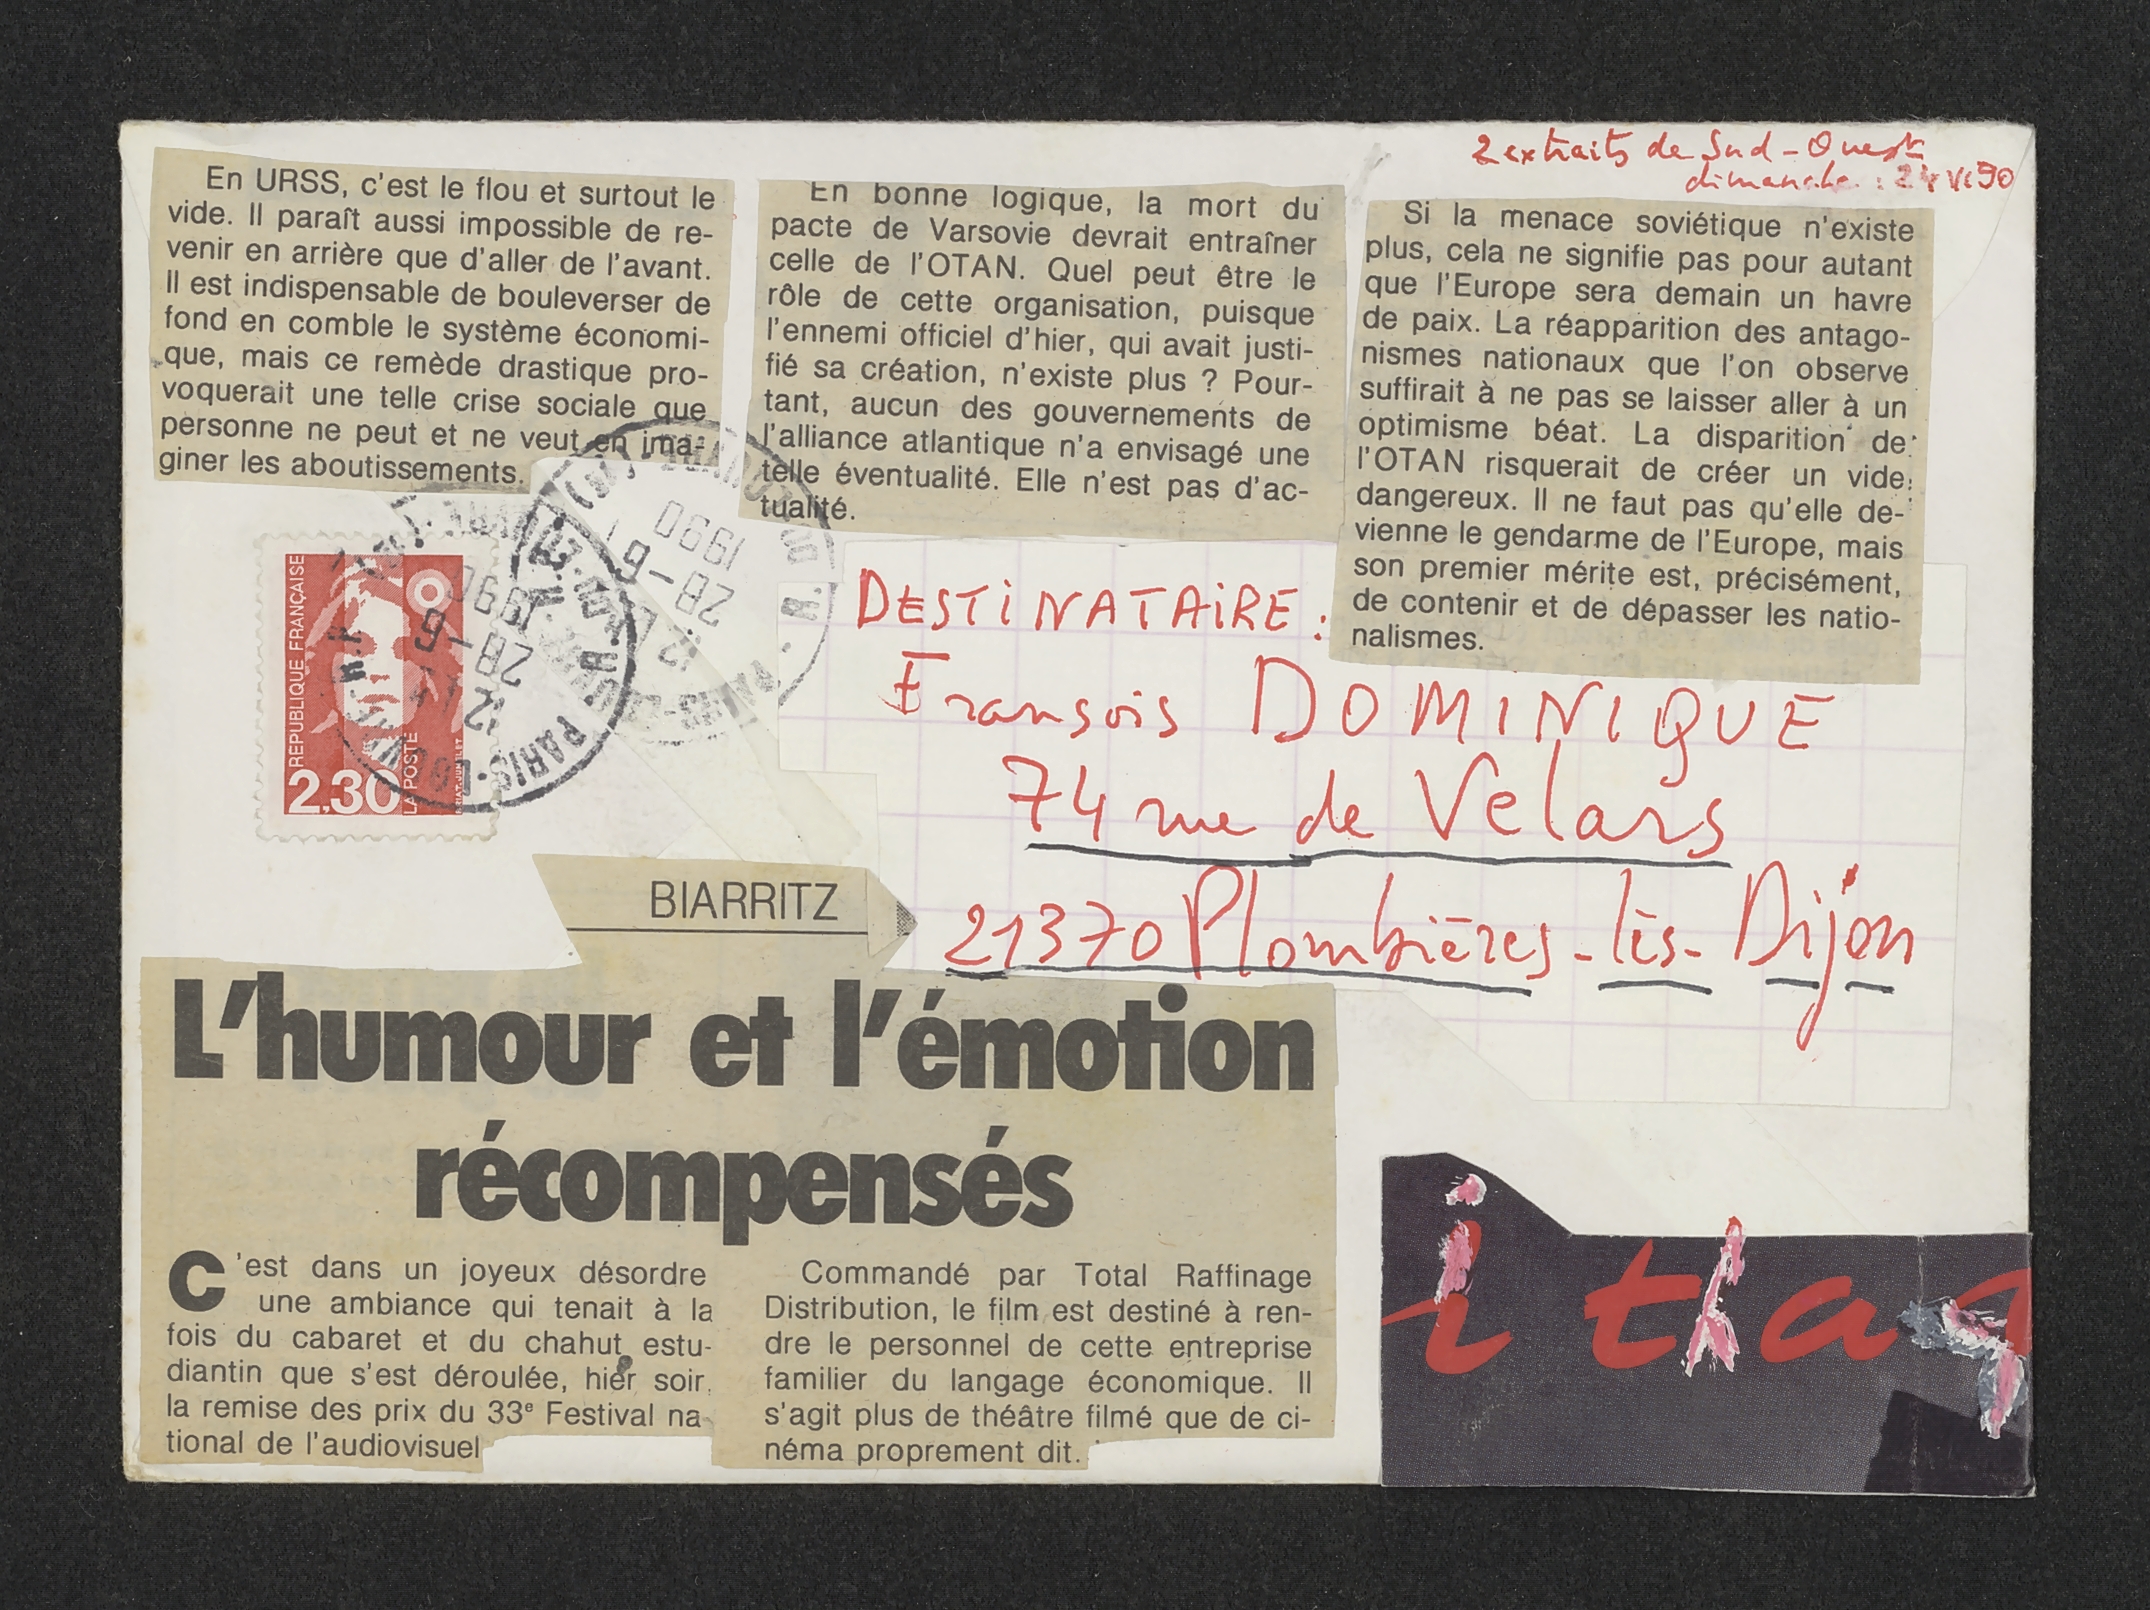 2 extraits de Sud-Ouest
dimanche : 24 VI 90
En URSS, c'est le flou et surtout le
vide. Il paraît aussi impossible de re-
venir en arrière que d'aller de l'avant.
Il est indispensable de bouleverser de
fond en comble le système économi-
que, mais ce remède drastique pro-
voquerait une telle crise sociale que
personne ne peut et ne veut en ima-
giner les aboutissements.
En bonne logique, la mort du
pacte de Varsovie devrait entraîner
celle de l'OTAN. Quel peut être le
rôle de cette organisation, puisque
l'ennemi officiel d'hier, qui avait justi-
fié sa création, n'existe plus ? Pour-
tant, aucun des gouvernements de
l'alliance atlantique n'a envisagé une
telle éventualité. Elle n'est pas d'ac-
tualité.
Si la menace soviétique n'existe
plus, cela ne signifie pas pour autant
que l'Europe sera demain un havre
de paix. La réapparition des antago-
nismes nationaux que l'on observe
suffirait à ne pas se laisser aller à un
optimisme béat. La disparition de
l'OTAN risquerait de créer un vide
dangereux. Il ne faut pas qu'elle de-
vienne le gendarme de l'Europe, mais
son premier mérite est, précisément,
de contenir et de dépasser les natio-
nalismes.
REPUBLIQUE FRANÇAISE
2,30
LA POSTE
PARIS-LOUVRE
12
28-6
1990
PARIS-LOUVRE
12
28-6
1990
DESTINATAIRE :
Fransois DOMINIQUE
74 rue de Velars
21370 Plombières-lès-Dijon
BIARRITZ
L'humour et l'émotion
récompensés
C'est dans un joyeux désordre
une ambiance qui tenait à la
fois du cabaret et du chahut estu-
diantin que s'est déroulée, hier soir,
la remise des prix du 33e Festival na-
tional de l'audiovisuel
Commandé par Total Raffinage
Distribution, le film est destiné à ren-
dre le personnel de cette entreprise
familier du langage économique. Il
s'agit plus de théâtre filmé que de ci-
néma proprement dit.